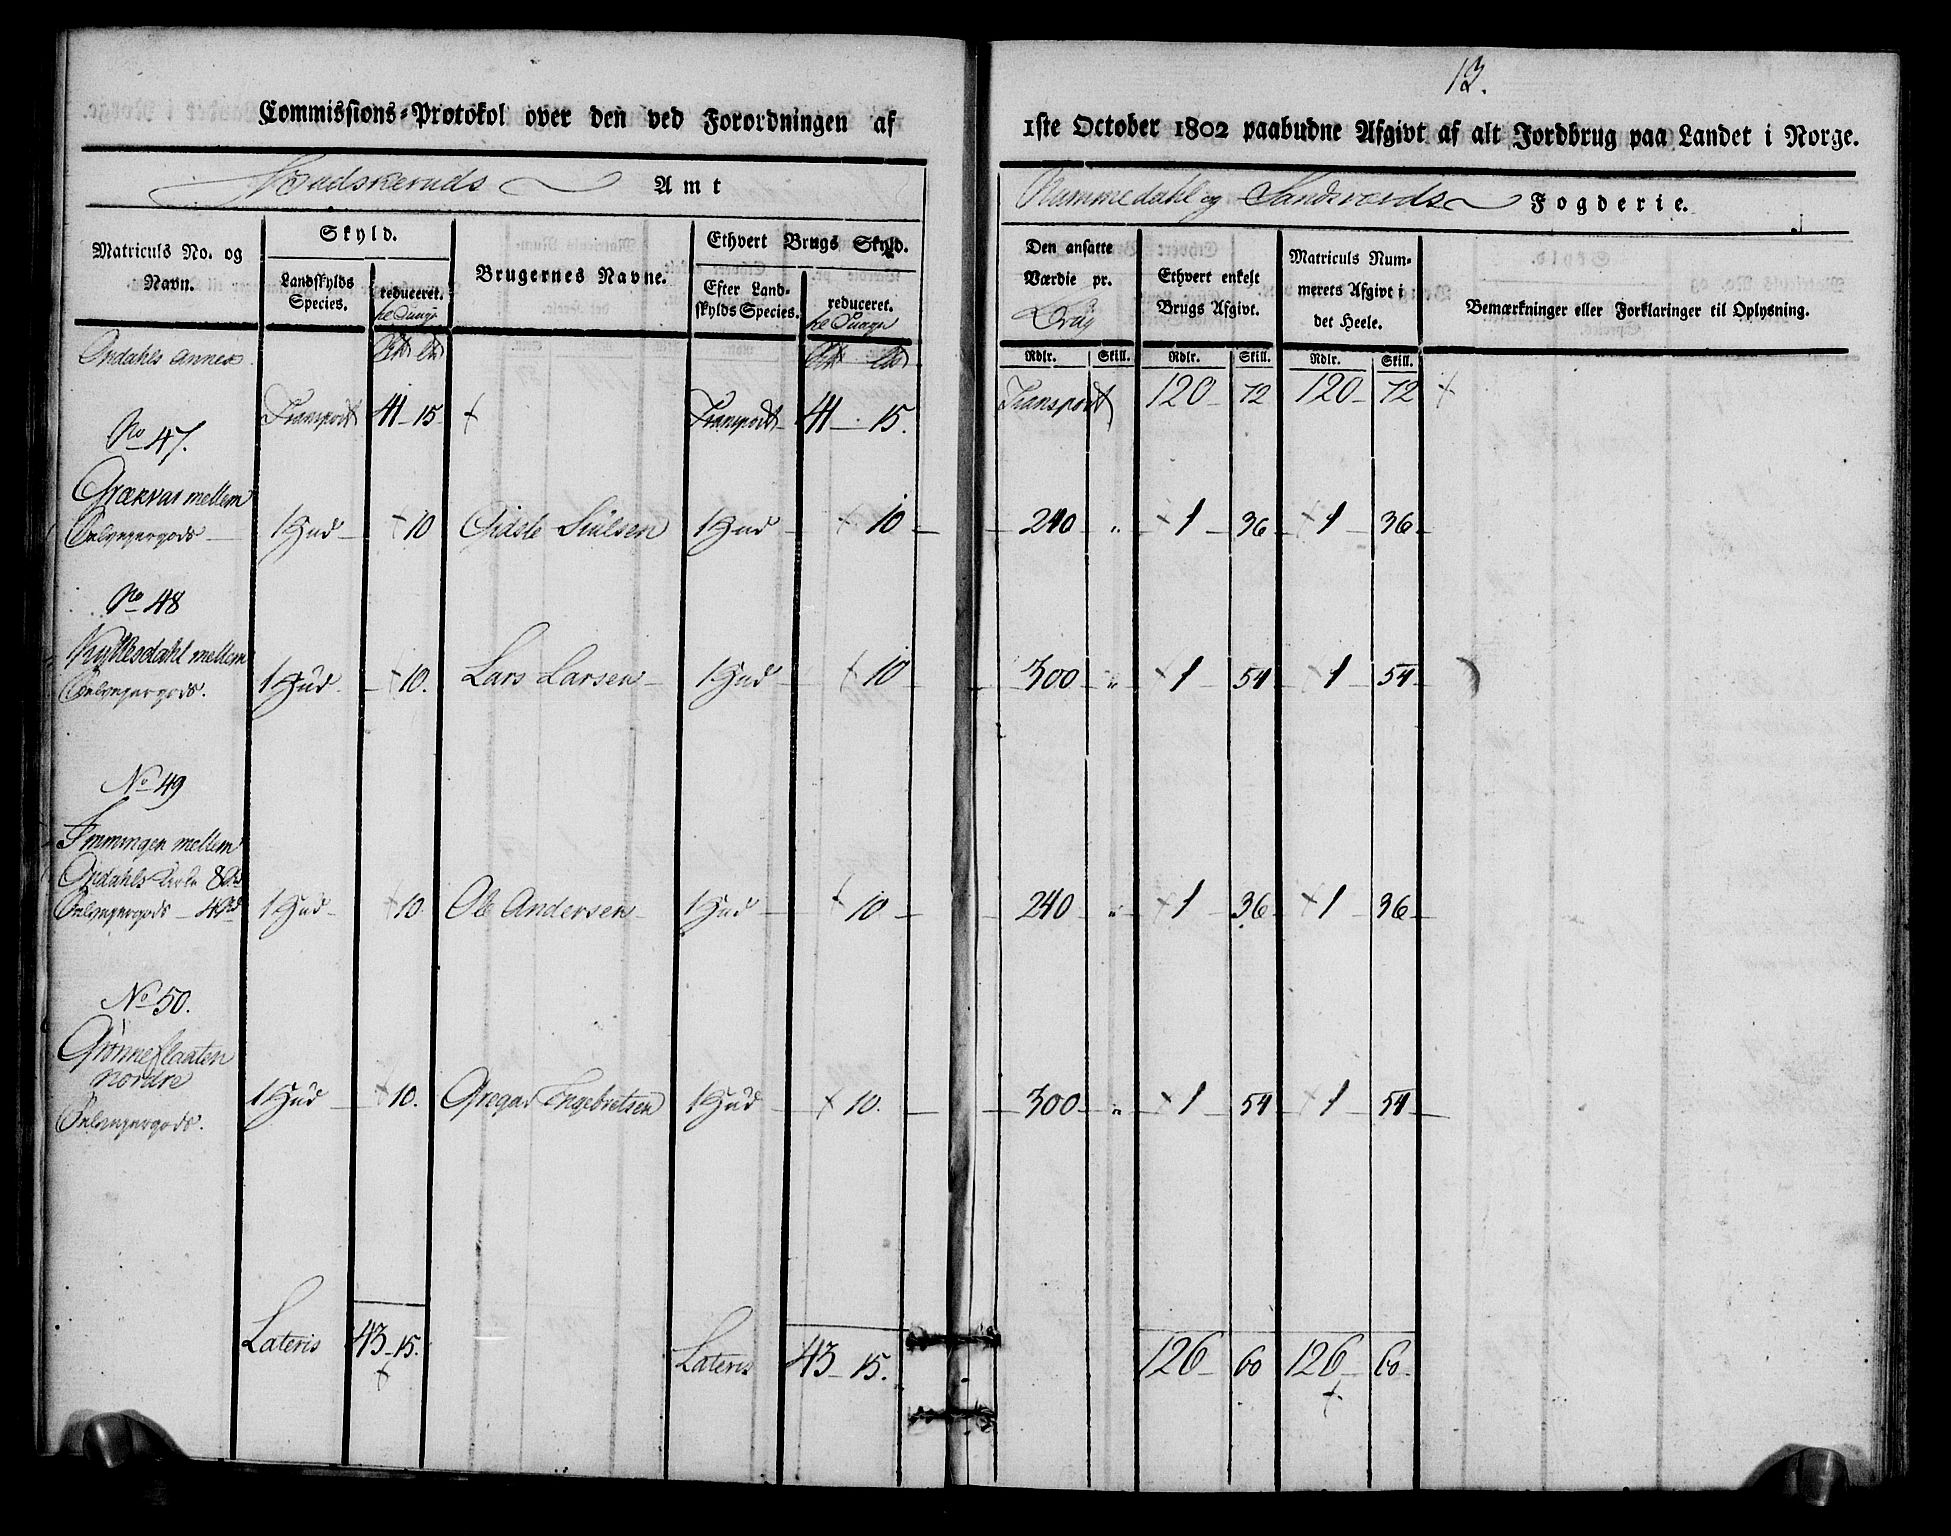 Commissions-Protokol over den ved Forordningen af
Budskeruds Amt
Matriculs No. og Navn.
Skyld.
Landskylds Species.
reduceret.
Brugernes Navne.
Ethvert Brugs Skyld.
Efter Landskylds Species.
reduceret.
Opdahls annex
Transport 41 - 15 Transport 41 - 15.
No 47.
Grækvas mellem
1 Hud - 10 Gidste 1 Hud - 10
No 48
mellem
1 Hud - 10. Lars Larsen 1 Hud 10
No 49
Immingen mellem
Opdahls
1 Hud - 10. Ole Andersen 1 Hud - 10
No 50.
Grønneflaaten
nordre
1 Hud - 10. Gregar Engebretsen 1 Hud - 10.
Lateris 43 - 15. Lateris 43 - 15.
13.
1ste October 1802 paabudne Afgivt af alt Jordbrug paa Landet i Norge.
Nummedahl og Sandsværds Fogderie.
Den ansatte Værdie pr.
Brug
Ethvert enkelt Brugs Afgivt.
Matriculs Nummerets Afgivt i det Heele.
Bemærkninger eller Forklaringer til Oplysning.
Rdlr. Skill. Rdlr. Skill. Rdlr. Skill.
Transport 120 - 72 120 - 72
240 " 1 - 36 1 - 36
300 " 1 - 54 1 - 54
240 " 1 - 36 1 - 36
300 " 1 - 54 1 - 54
126 - 60 126 - 60